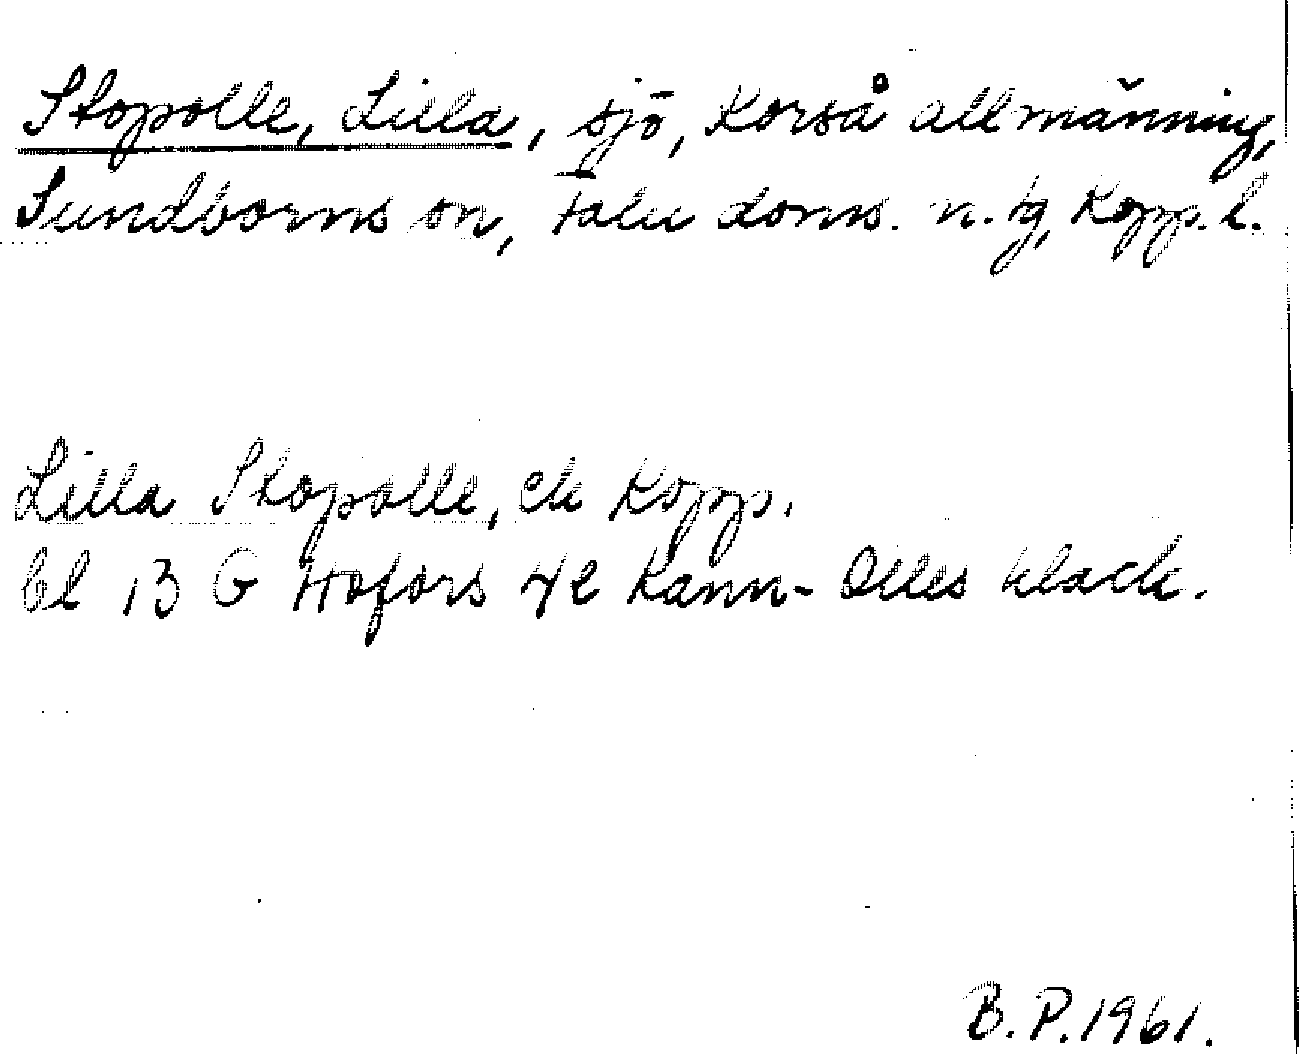 Stopolle, Lilla, sjö, Korså allmänning,
Sundborns sn, Falu doms. n. tg, Kopp. l.
Lilla Stopolle, ek Kopp.
bl 13 G Hofors 4e Kann-Olles klack.
B.P. 1961.